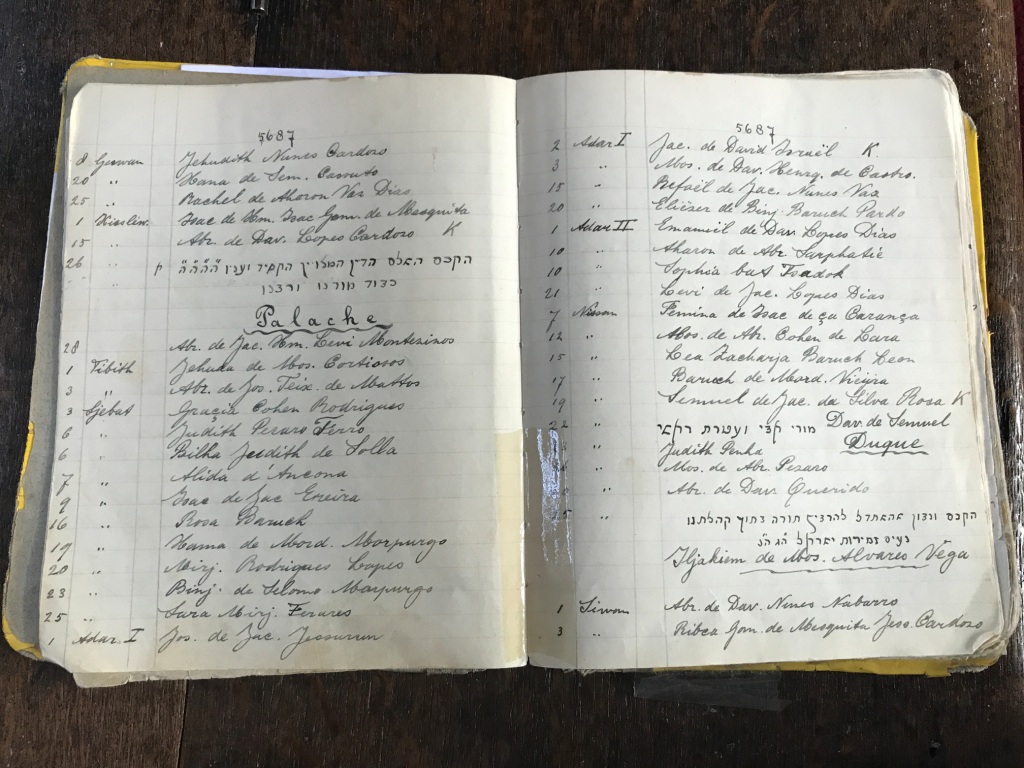 5687
8 Geswan Jehudith Nunes Cardozo
20 „ Hana de Sem. Cassuto
25 „ Rachel de Aharon Vaz Dias
1 Kislew Isac de Hm. Isac Gom. de Mesquita
15 „ Abr. de Dav. Lopes Cardozo K
26 „ החכם השלם הדיין המצויין החסיד ועניו
כבוד מורנו ורבנו
Palache
28 Abr. de Jac. Hm. Levi Montezinos
1 Tibith Jehuda de Mos. Cortissos
3 „ Abr. de Jos. Teix. de Mattos
3 Sjebat Gracia Cohen Rodrigues
6 „ Judith Pesaro Ferro
6 „ Bilha Judith de Solla
7 „ Alida d'Ancona
9 „ Isac de Jac Ereira
16 „ Rosa Baruch
17 „ Hanna de Mord. Morpurgo
20 „ Mirj. Rodrigues Lopes
23 „ Binj. de Selomo Morpurgo
25 „ Sara Mirj. Ferares
1 Adar I Jos. de Jac. Jessurun
5687
2 Adar I Jac. de David Israël K
3 „ Mos. de Dav. Henrq. de Castro.
15 „ Refaël de Jac. Nunes Vaz
20 „ Eliëzer de Binj. Baruch Pardo
1 Adar II Emanuël de Dav. Lopes Dias
10 „ Aharon de Abr. Sarphatié
10 „ Sophia bat Tsadok
21 „ Levi de Jac. Lopes Dias
7 Nissan Femina de Isac de ça Carança
12 „ Mos. de Abr. Cohen de Lara
15 „ Lea Zacharja Baruch Leon
17 „ Baruch de Mord. Vieijra
19 „ Semuel de Jac. da Silva Rosa K
22 „ מורי חמי ועטרת ראשי Dav. de Semuel
„ Judith Penha Duque
„ Mos. de Abr. Pesaro
„ Abr. de Dav. Querido
„ החכם ונבון להרביץ תורה בתוך קהלתנו
נעים זמירות ישראל
Eljakim de Mos. Alvares Vega
1 Siwan Abr. de Dav. Nunes Nabarro
3 „ Ribca Gom. de Mesquita Jess. Cardozo